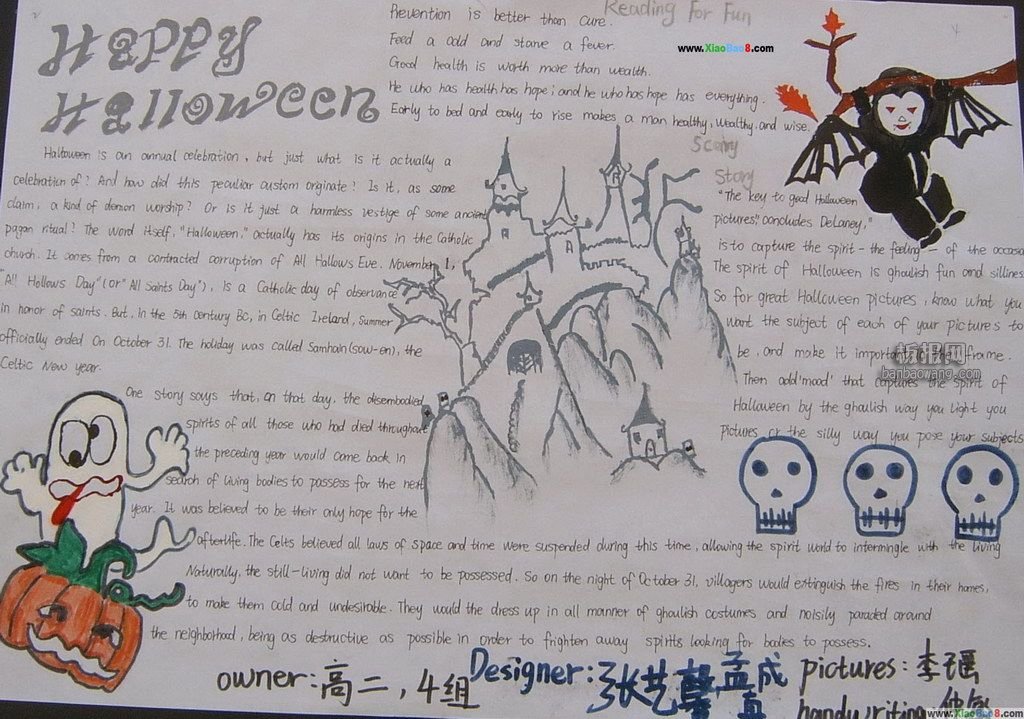 Happy
Halloween
Prevention is better than cure.
Reading For Fun
Feed a cold and starve a fever.
www.XiaoBao8.com
Good health is worth more than wealth.
He who has health has hope; and he who has hope has everything.
Early to bed and early to rise makes a man healthy, wealthy, and wise.
Halloween is an annual celebration, but just what is it actually a
celebration of? And how did this peculiar custom originate? Is it, as some
claim, a kind of demon worship? Or is it just a harmless vestige of some ancient
pagan ritual? The word itself, "Halloween," actually has its origins in the Catholic
church. It comes from a contracted corruption of All Hallows Eve. November 1,
"All Hollows Day" (or "All Saints Day"), is a Catholic day of observance
in honor of saints. But, in the 5th century BC, in Celtic Ireland, summer
officially ended On October 31. The holiday was called Samhain (sow-en), the
Celtic New year.
One story says that, on that day, the disembodied
spirits of all those who had died throughout
the preceding year would come back in
search of living bodies to possess for the next
year. It was believed to be their only hope for the
afterlife. The Celts believed all laws of space and time were suspended during this time, allowing the spirit world to intermingle with the living
Naturally, the still-living did not want to be possessed. So on the night of October 31, villagers would extinguish the fires in their homes,
to make them cold and undesirable. They would the dress up in all manner of ghoulish costumes and noisily paraded around
the neighborhood, being as destructive as possible in order to frighten away spirits looking for bodies to possess.
Scary
Story
"The key to good Halloween
pictures," concludes DeLaney,"
is to capture the spirit - the feeling - of the occasion
The spirit of Halloween is ghoulish fun and silliness
So for great Halloween pictures, know what you
want the subject of each of your pictures to
be, and make it important frame.
Then add 'mood' that captures the spirit of
Halloween by the ghoulish way you light you
pictures or the silly way you pose your subjects
板报网
banbaowang.com
owner: 高二，4组
Designer: 张艺馨 孟成真
pictures: 李瑶
handwriting
www.XiaoBao8.com